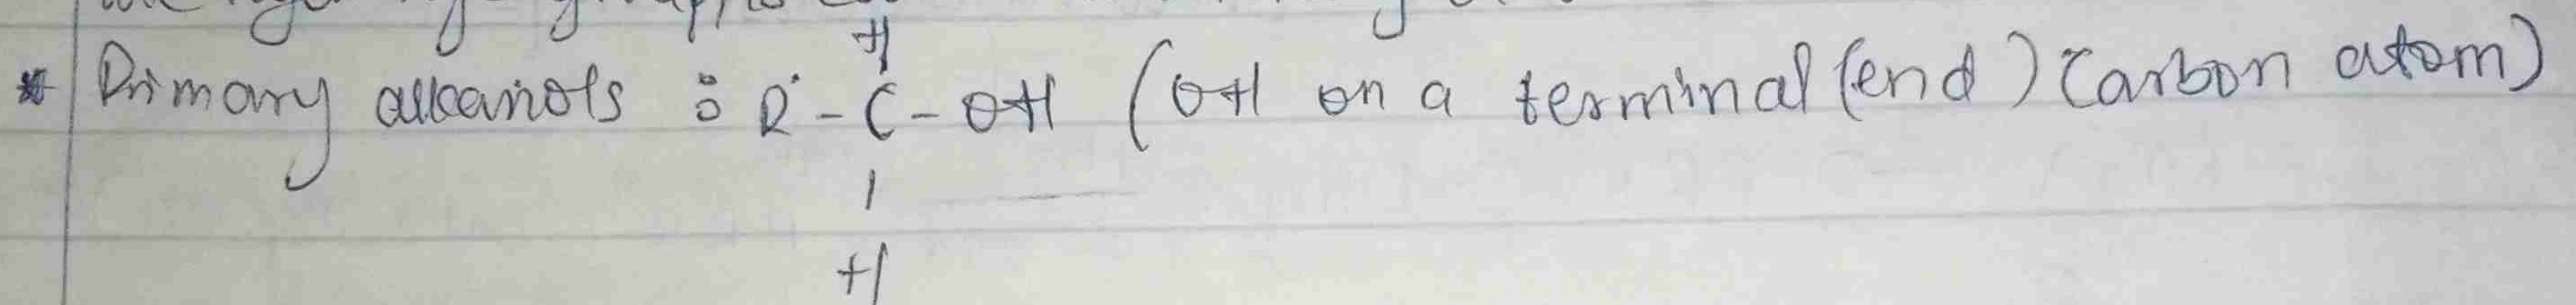 H
* Primary alkanols : R - C - OH (OH on a terminal (end) Carbon atom)
|
H